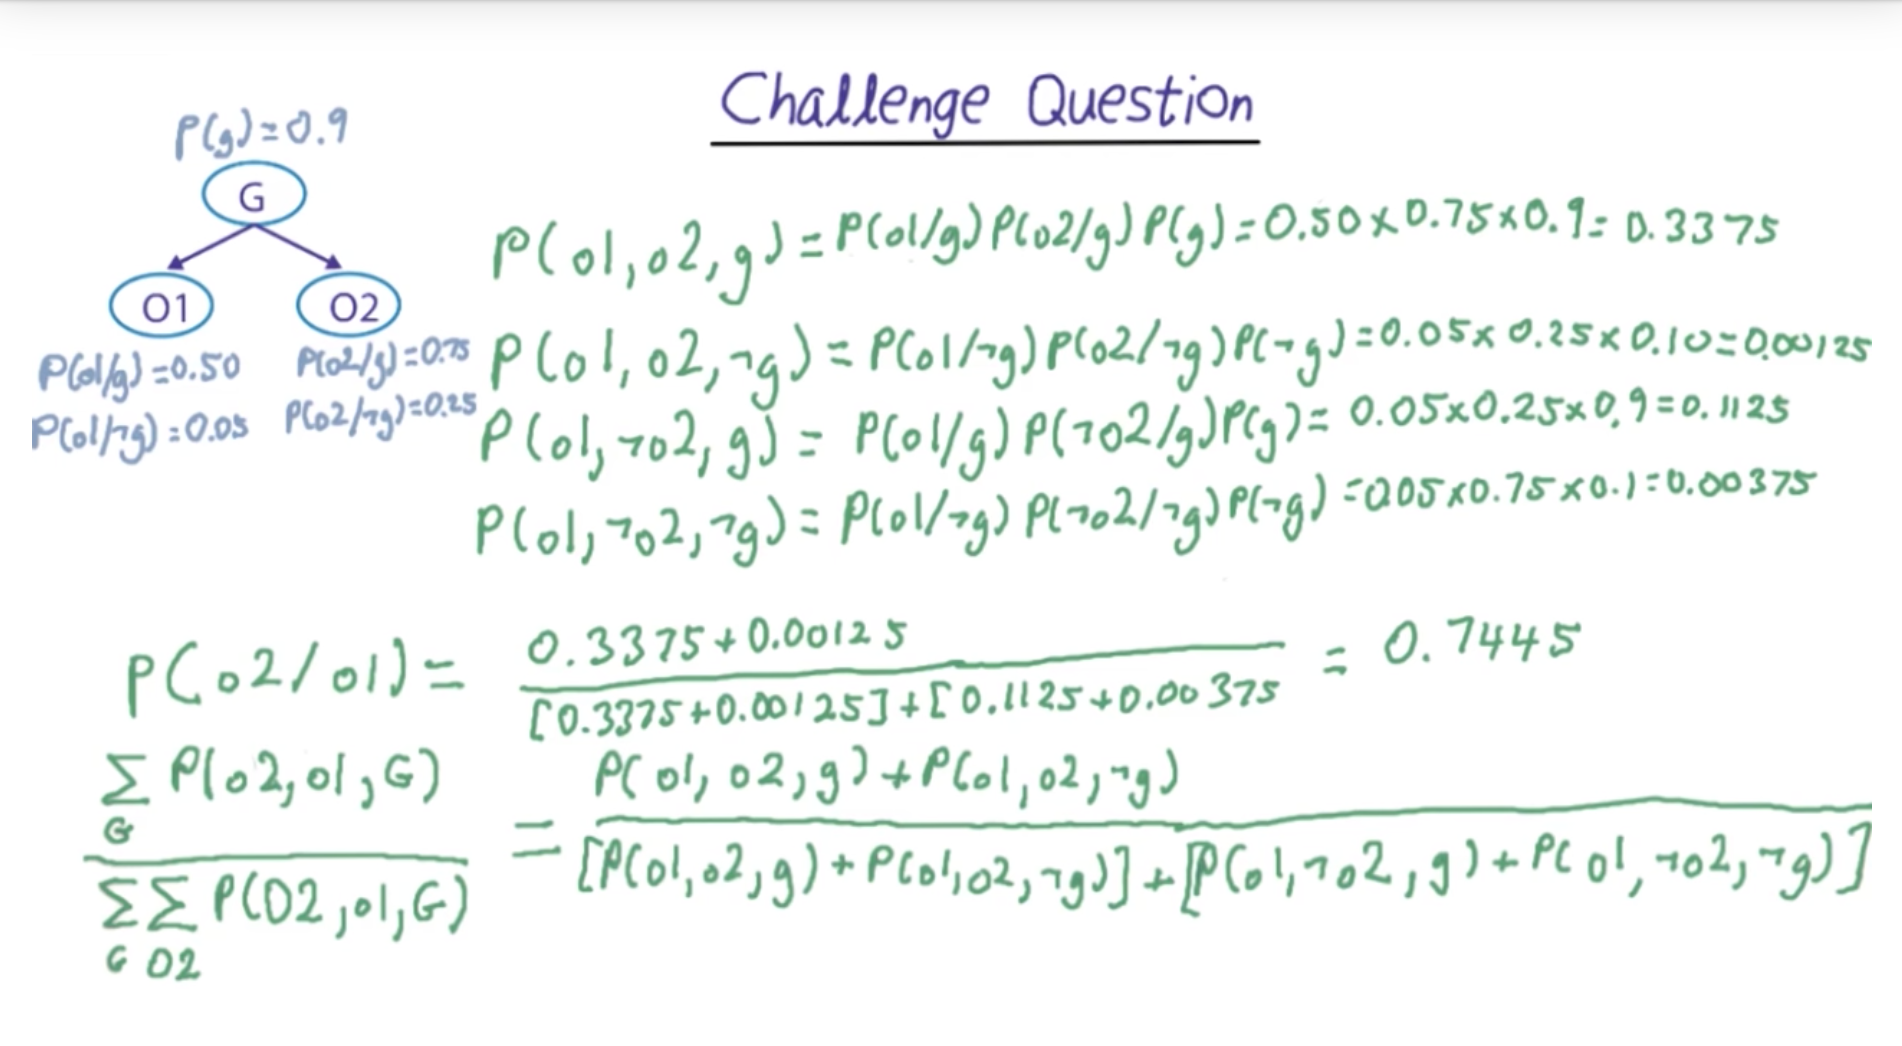 Challenge Question
P(g)=0.9
G
O1
O2
P(o1/g)=0.50
P(o2/g)=0.75
P(o1/¬g)=0.05
P(o2/¬g)=0.25
P(o1,o2,g)=P(o1/g)P(o2/g)P(g)=0.50x0.75x0.9=0.3375
P(o1,o2,¬g)=P(o1/¬g)P(o2/¬g)P(¬g)=0.05x0.25x0.10=0.00125
P(o1,¬o2,g)=P(o1/g)P(¬o2/g)P(g)=0.05x0.25x0.9=0.1125
P(o1,¬o2,¬g)=P(o1/¬g)P(¬o2/¬g)P(¬g)=005x0.75x0.1=0.00375
0.3375+0.00125
P(o2/o1)= = 0.7445
[0.3375+0.00125]+[0.1125+0.00375
∑ P(o2,o1,G)
G
P(o1,o2,g)+P(o1,o2,¬g)
=
∑∑ P(O2,o1,G)
G O2
[P(o1,o2,g)+P(o1,o2,¬g)]+[P(o1,¬o2,g)+P(o1,¬o2,¬g)]